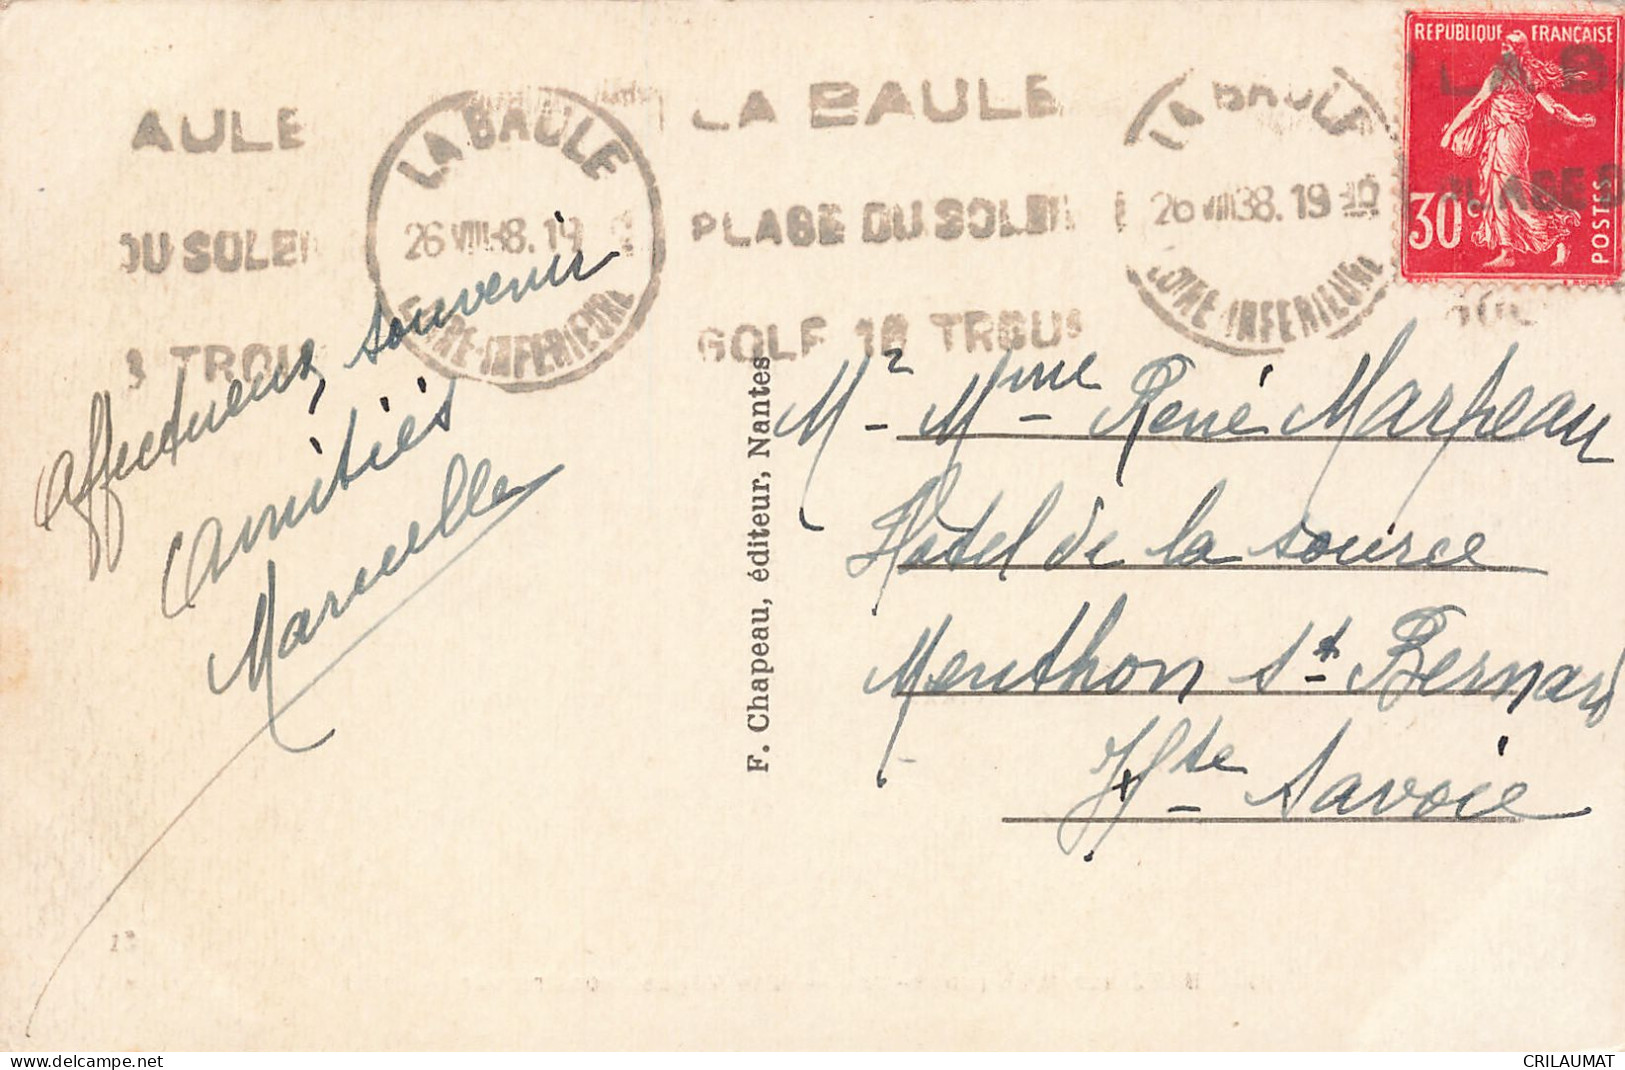 REPUBLIQUE FRANÇAISE
30c
POSTES
LA BAULE
26 VIII 38. 19
LOIRE-INFERIEURE
LA BAULE
PLAGE DU SOLEIL
GOLF 18 TROUS
LA BAULE
26 VIII 38. 19 30
LOIRE-INFERIEURE
LA BA
PLAGE D
AULE
DU SOLEI
8 TROU
affectueux souvenir
amitiés
Marcelle
F. Chapeau, éditeur, Nantes
Mr - Mme René Marpeau
Hôtel de la source
Menthon St Bernard
Hte Savoie
13
www.delcampe.net
CRILAUMAT